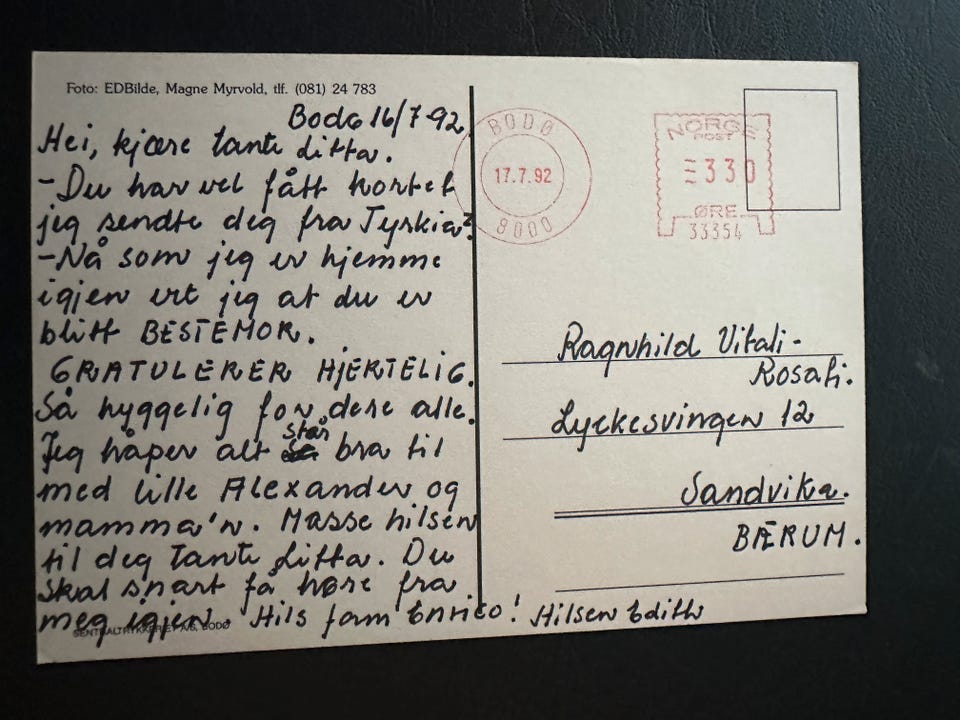 Foto: EDBilde, Magne Myrvold, tlf. (081) 24 783
Bodø 16/7-92
Hei, kjære tante Litta.
-Du har vel fått kortet
jeg sendte deg fra Tyrkia?
-Nå som jeg er hjemme
igjen vet jeg at du er
blitt BESTEMOR.
GRATULERER HJERTELIG.
Så hyggelig for dere alle.
Jeg håper alt står bra til
med lille Alexander og
mamma'n. Masse hilsen
til deg tante Litta. Du
skal snart få høre fra
meg igjen. Hils fam Enrico! Hilsen Edith
SENTRALTRYKKERIET A/S, BODØ
BODØ
17.7.92
8000
NORGE
POST
330
ØRE
33354
Ragnhild Vitali-
Rosati.
Lyckesvingen 12
Sandvika.
BÆRUM.